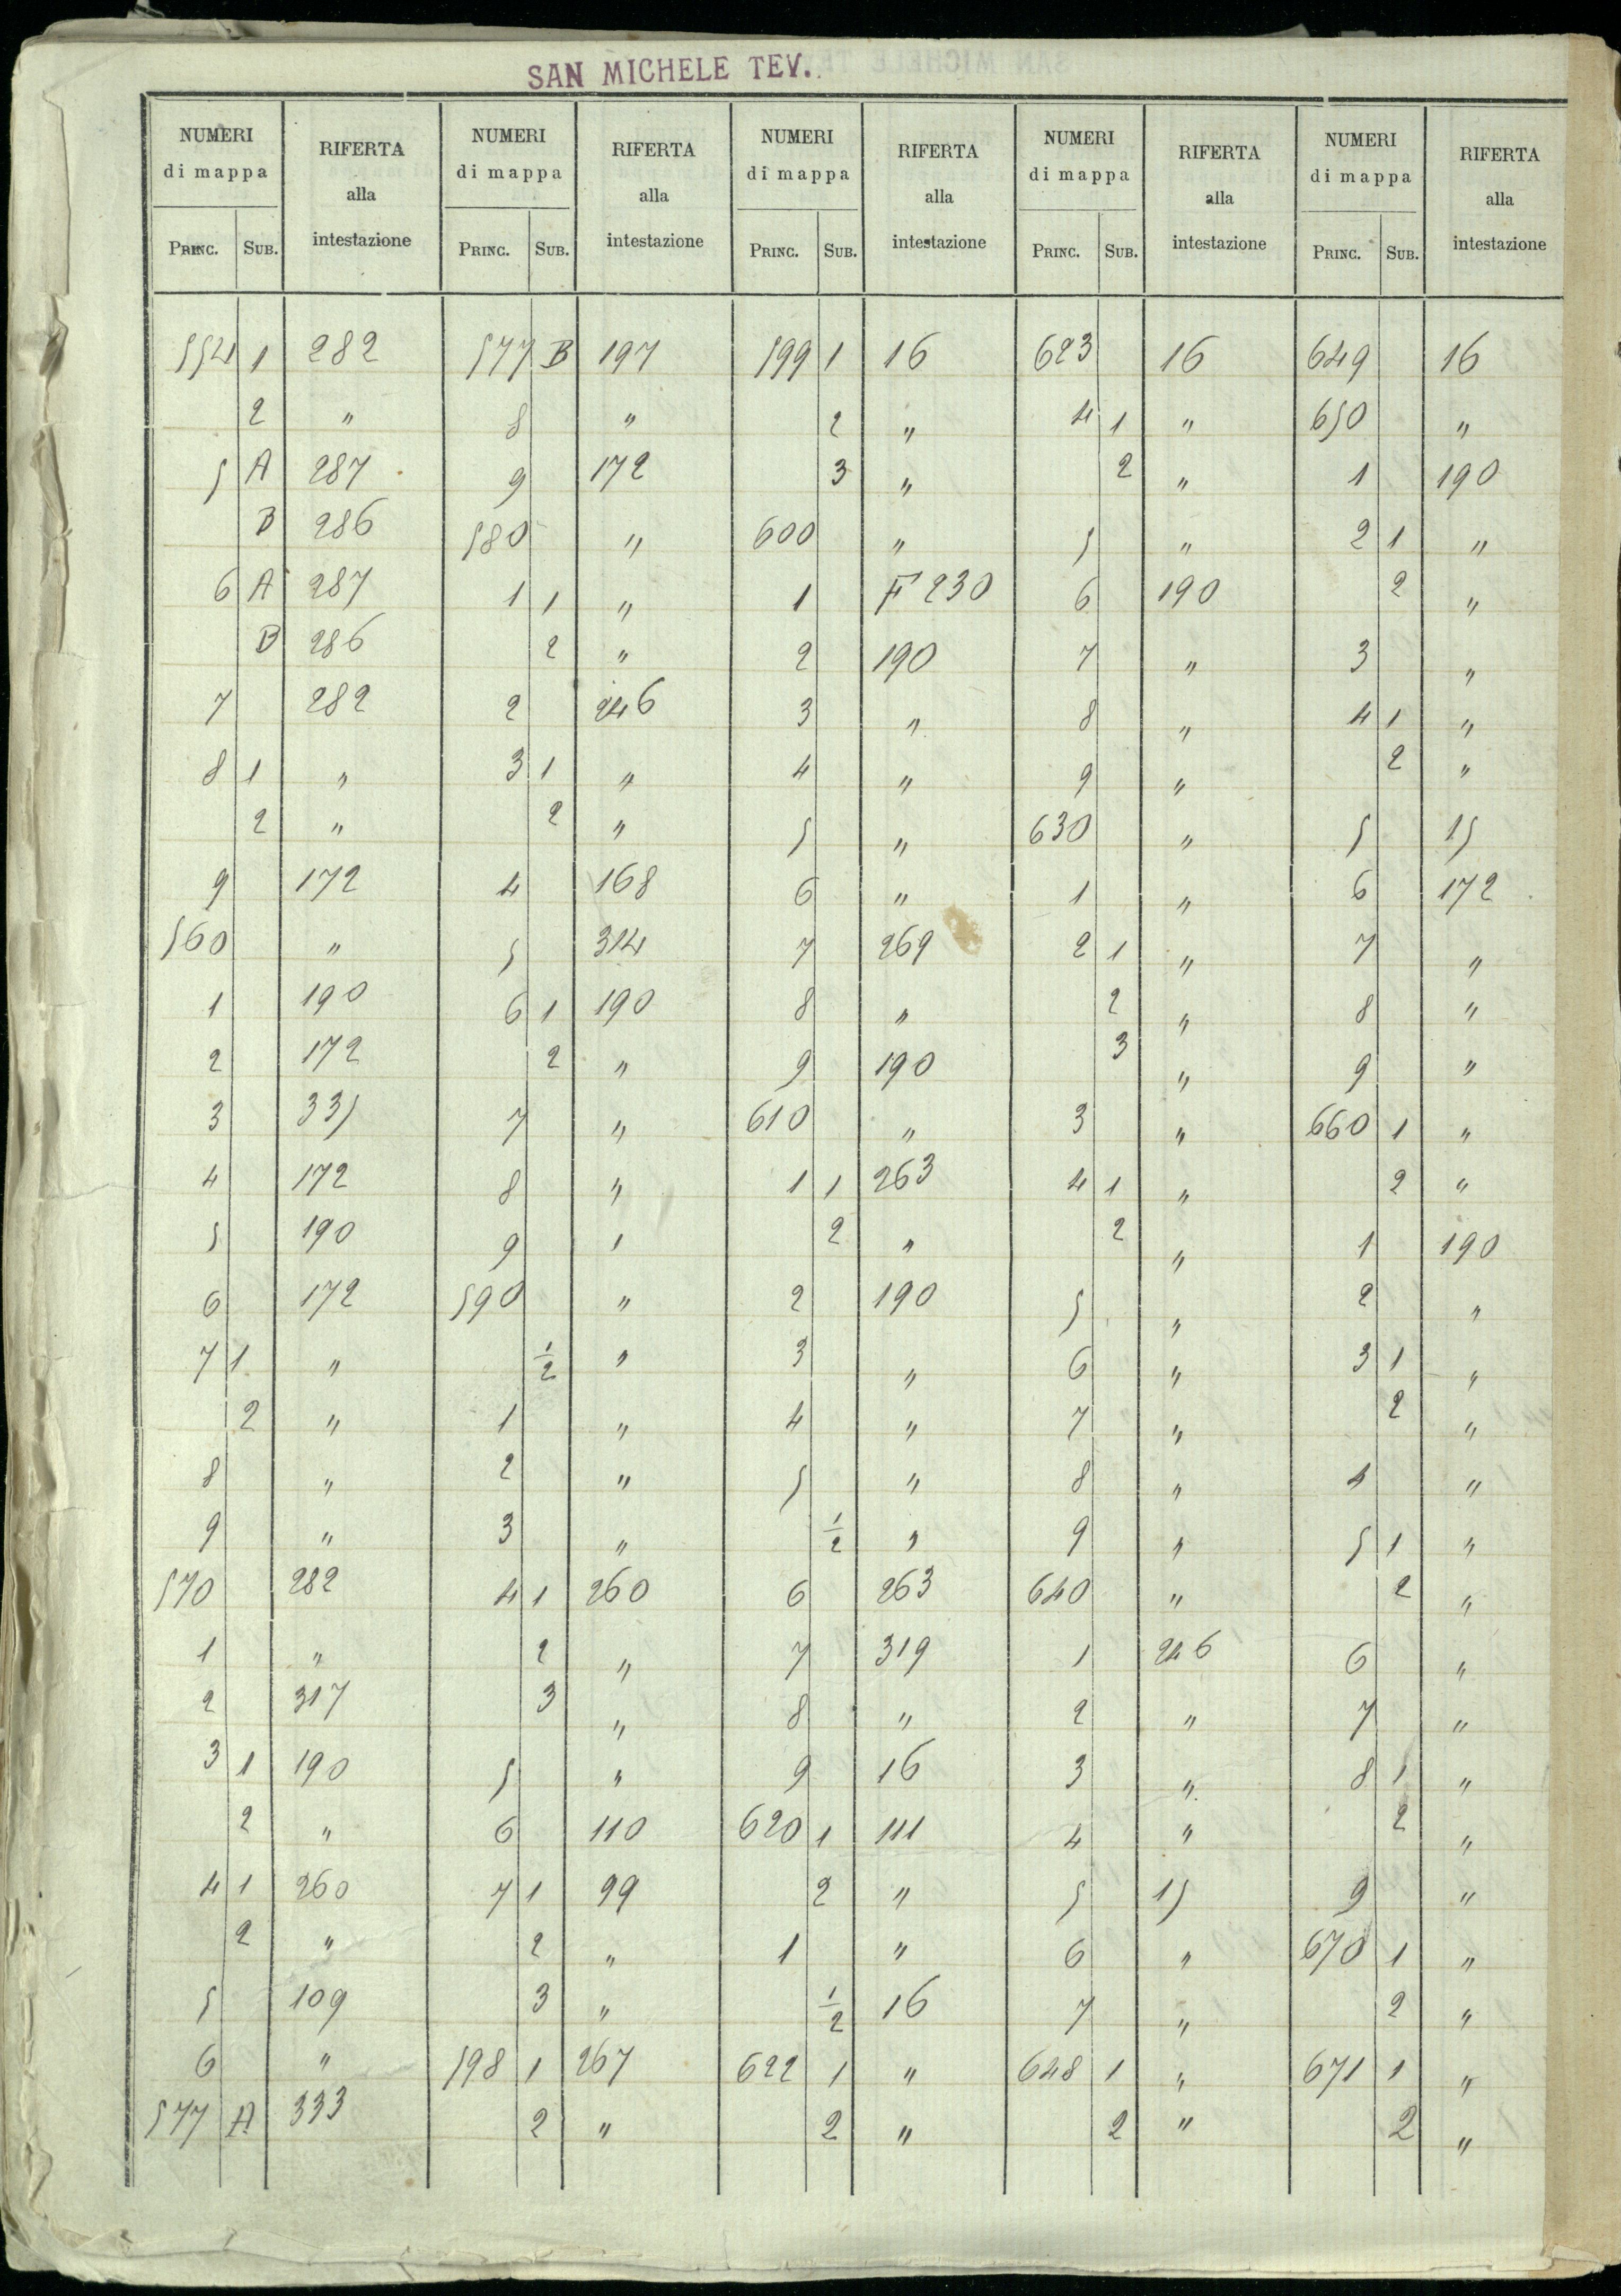 SAN MICHELE TEV.
NUMERI di mappa RIFERTA alla intestazione NUMERI di mappa RIFERTA alla intestazione NUMERI di mappa RIFERTA alla intestazione NUMERI di mappa RIFERTA alla intestazione NUMERI di mappa RIFERTA alla intestazione
PRINC. SUB. PRINC. SUB. PRINC. SUB. PRINC. SUB. PRINC. SUB.
554 1 282 577 B 197 599 1 16 623 16 649 16
2 " 8 " 2 " 4 1 " 650 "
5 A 287 9 172 3 " 2 " 1 190
B 286 580 " 600 " 5 " 2 1 "
6 A 287 1 1 " 1 F 230 6 190 2 "
B 286 2 " 2 190 7 " 3 "
7 282 2 246 3 " 8 " 4 1 "
8 1 " 3 1 " 4 " 9 " 2 "
2 " 2 " 5 " 630 " 5 15
9 172 4 168 6 " 1 " 6 172
560 " 5 314 7 269 2 1 " 7 "
1 190 6 1 190 8 " 2 " 8 "
2 172 2 " 9 190 3 " 9 "
3 335 7 " 610 " 3 " 660 1 "
4 172 8 " 1 1 263 4 1 " 2 "
5 190 9 " 2 " 2 " 1 190
6 172 590 " 2 190 5 " 2 "
7 1 " 1/2 " 3 " 6 " 3 1 "
2 " 1 " 4 " 7 " 2 "
8 " 2 " 5 " 8 " 4 "
9 " 3 " 1/2 " 9 " 5 1 "
570 282 4 1 260 6 263 640 " 2 "
1 " 2 " 7 319 1 246 6 "
2 317 3 " 8 " 2 " 7 "
3 1 190 5 " 9 16 3 " 8 1 "
2 " 6 110 620 1 111 4 " 2 "
4 1 260 7 1 99 2 " 5 15 9 "
2 " 2 " 1 " 6 " 670 1 "
5 109 3 " 1/2 16 7 " 2 "
6 " 598 1 267 622 1 " 648 1 " 671 1 "
577 A 333 2 " 2 " 2 " 2 "